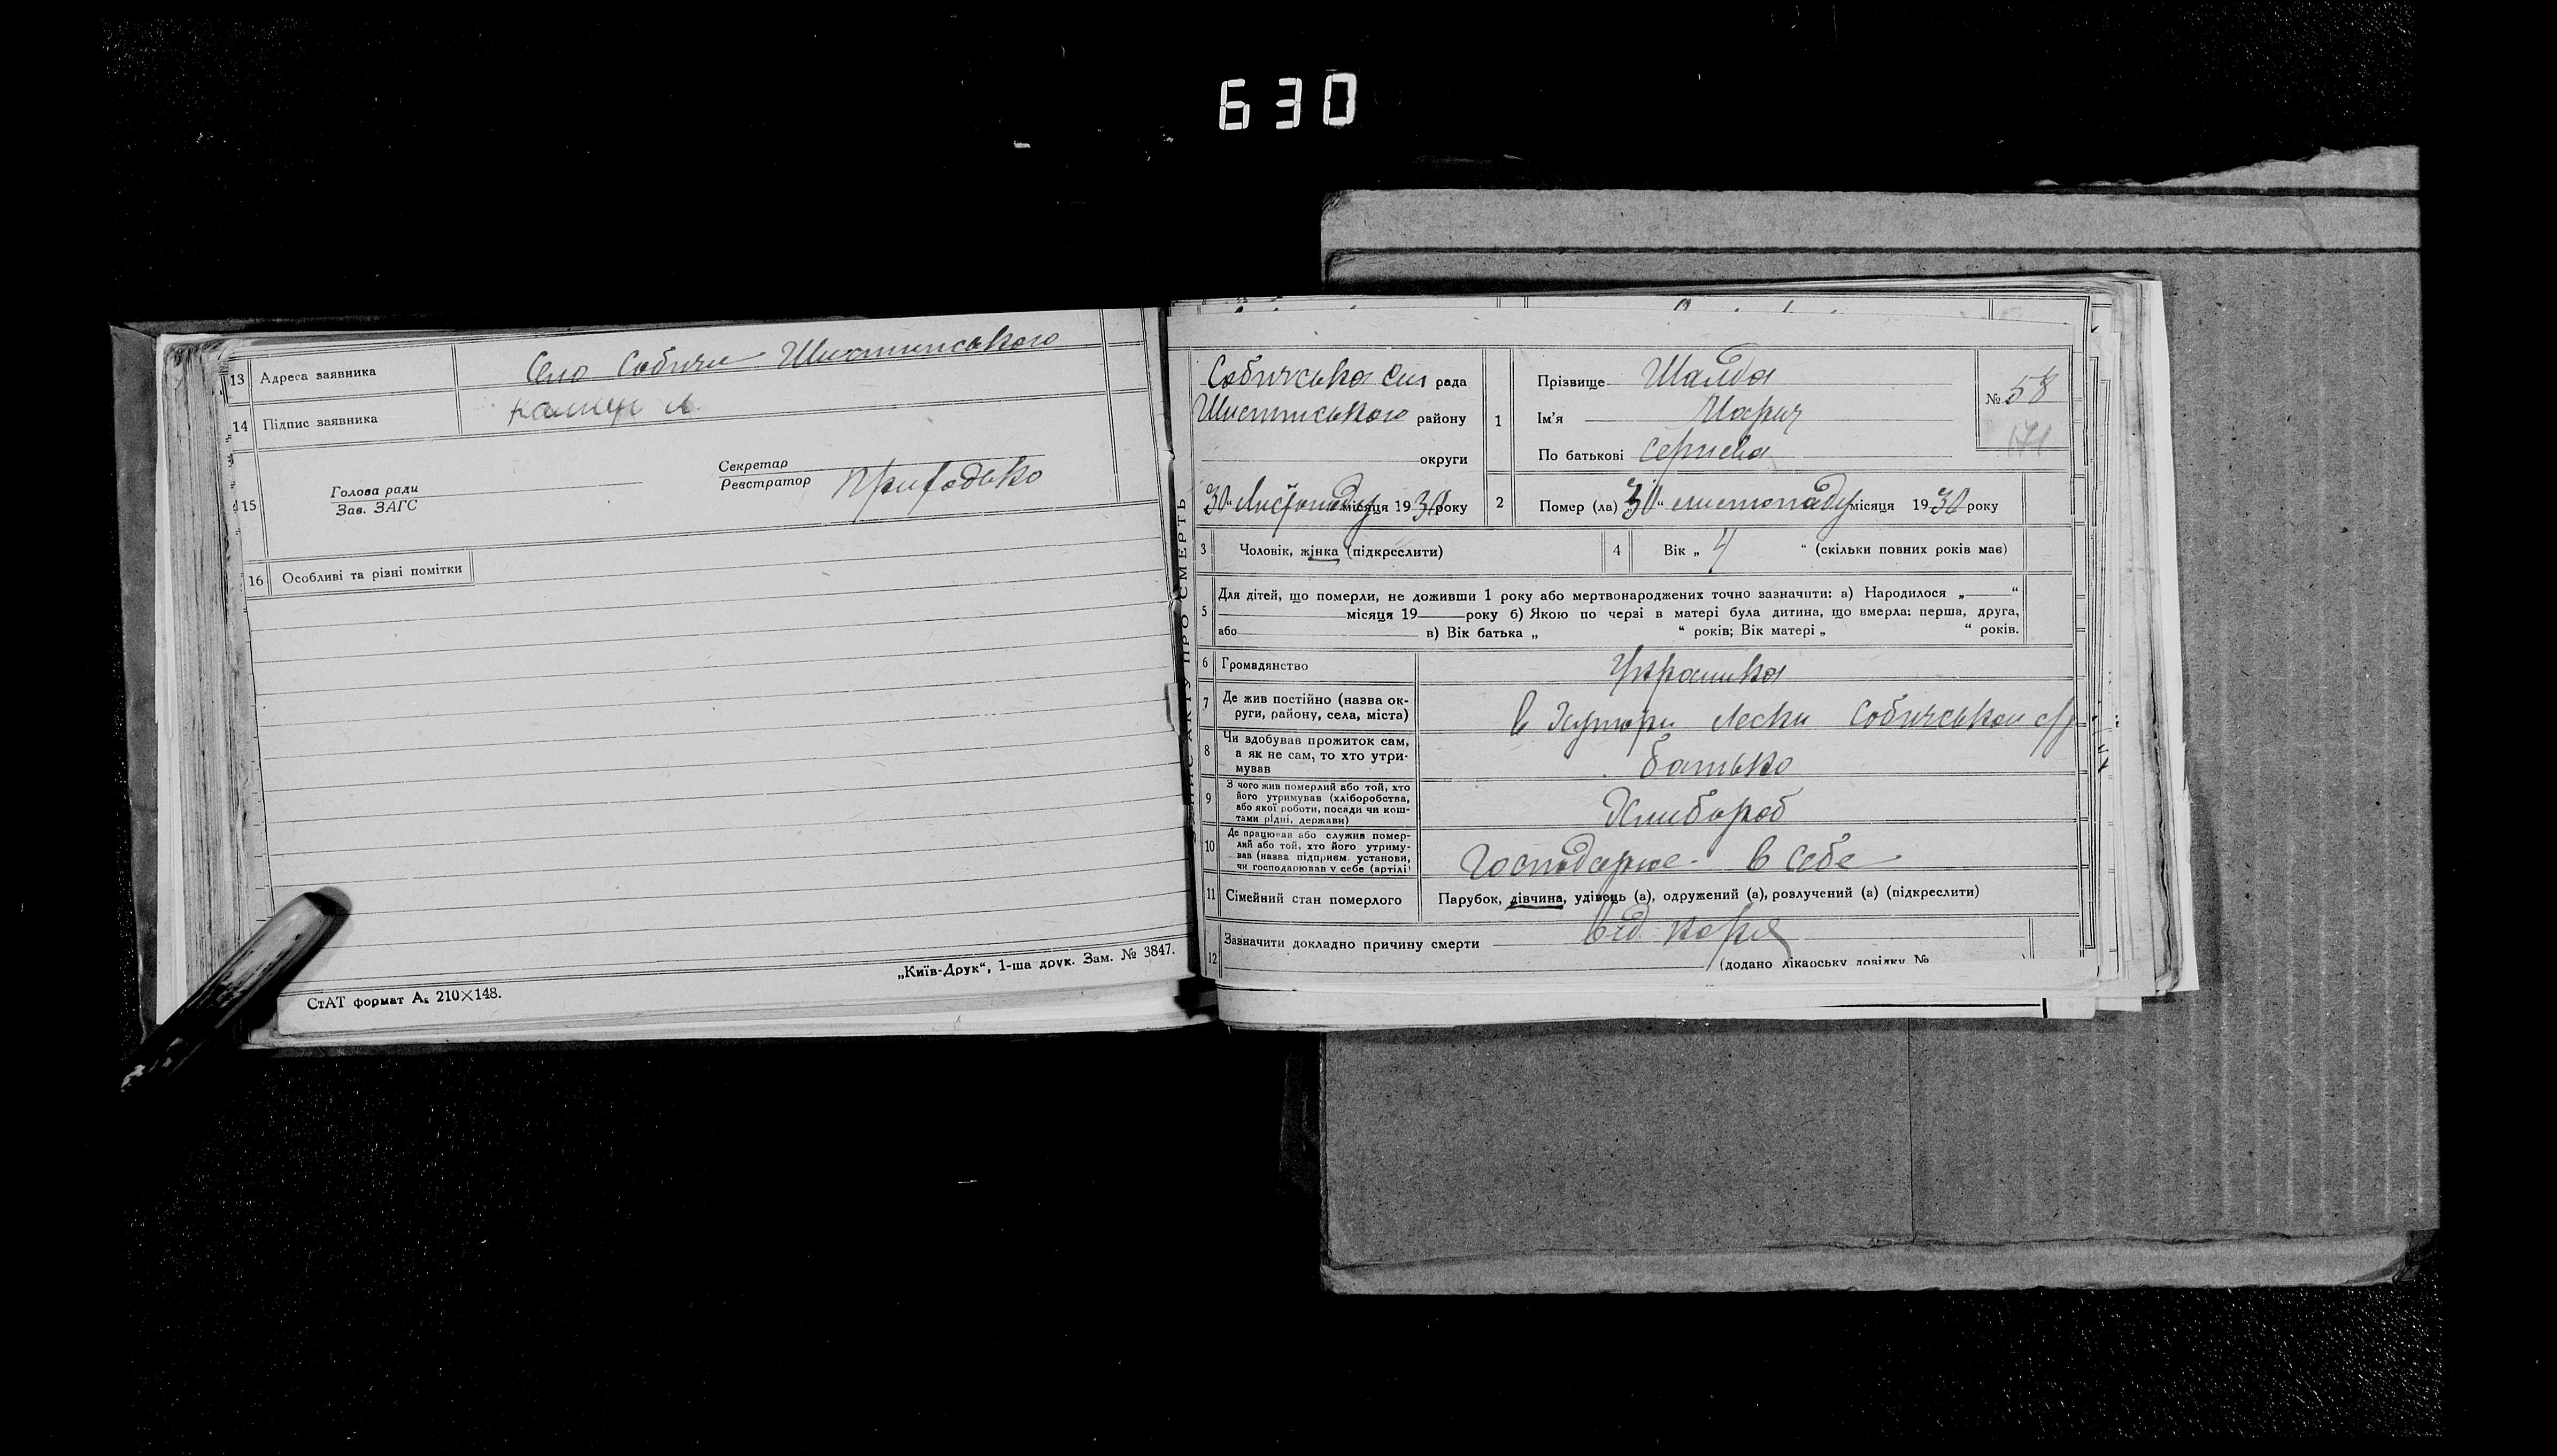 630
13 Адреса заявника Село Собичи Шостинського
14 Підпис заявника
15 Голова ради
Зав. ЗАГС
Секретар
Реєстратор Приходько
16 Особливі та різні помітки
„Київ-Друк“, 1-ша друк. Зам. № 3847.
СтАТ формат А₅ 210×148.
Собичська сил рада
Шостинського району
округи
„30“ Листопаду місяця 1930 року
1 Прізвище Шалда
Ім'я Марія
По батькові Сергиевна
№ 58
171
2 Помер (ла) „30“ листопаду місяця 1930 року
3 Чоловік, жінка (підкреслити)
4 Вік „ 4 “ (скільки повних років має)
5 Для дітей, що померли, не доживши 1 року або мертвонароджених точно зазначити: а) Народилося „ “
місяця 19 року б) Якою по черзі в матері була дитина, що вмерла: перша, друга,
або в) Вік батька „ “ років; Вік матері „ “ років.
6 Громадянство Українка
7 Де жив постійно (назва ок-
руги, району, села, міста) в Хуторі Лески Собичської с/р
8 Чи здобував прожиток сам,
а як не сам, то хто утри-
мував батько
9 З чого жив померлий або той, хто
його утримував (хліборобства,
або якої роботи, посади чи кош-
тами рідні, держави) Хлибороб
10 Де працював або служив помер-
лий або той, хто його утриму-
вав (назва підприєм. установи,
чи господарював у себе (артілі) Господарює в себе
11 Сімейний стан померлого Парубок, дівчина, удівець (а), одружений (а), розлучений (а) (підкреслити)
12 Зазначити докладно причину смерти від коря
(додано лікарську довідку №